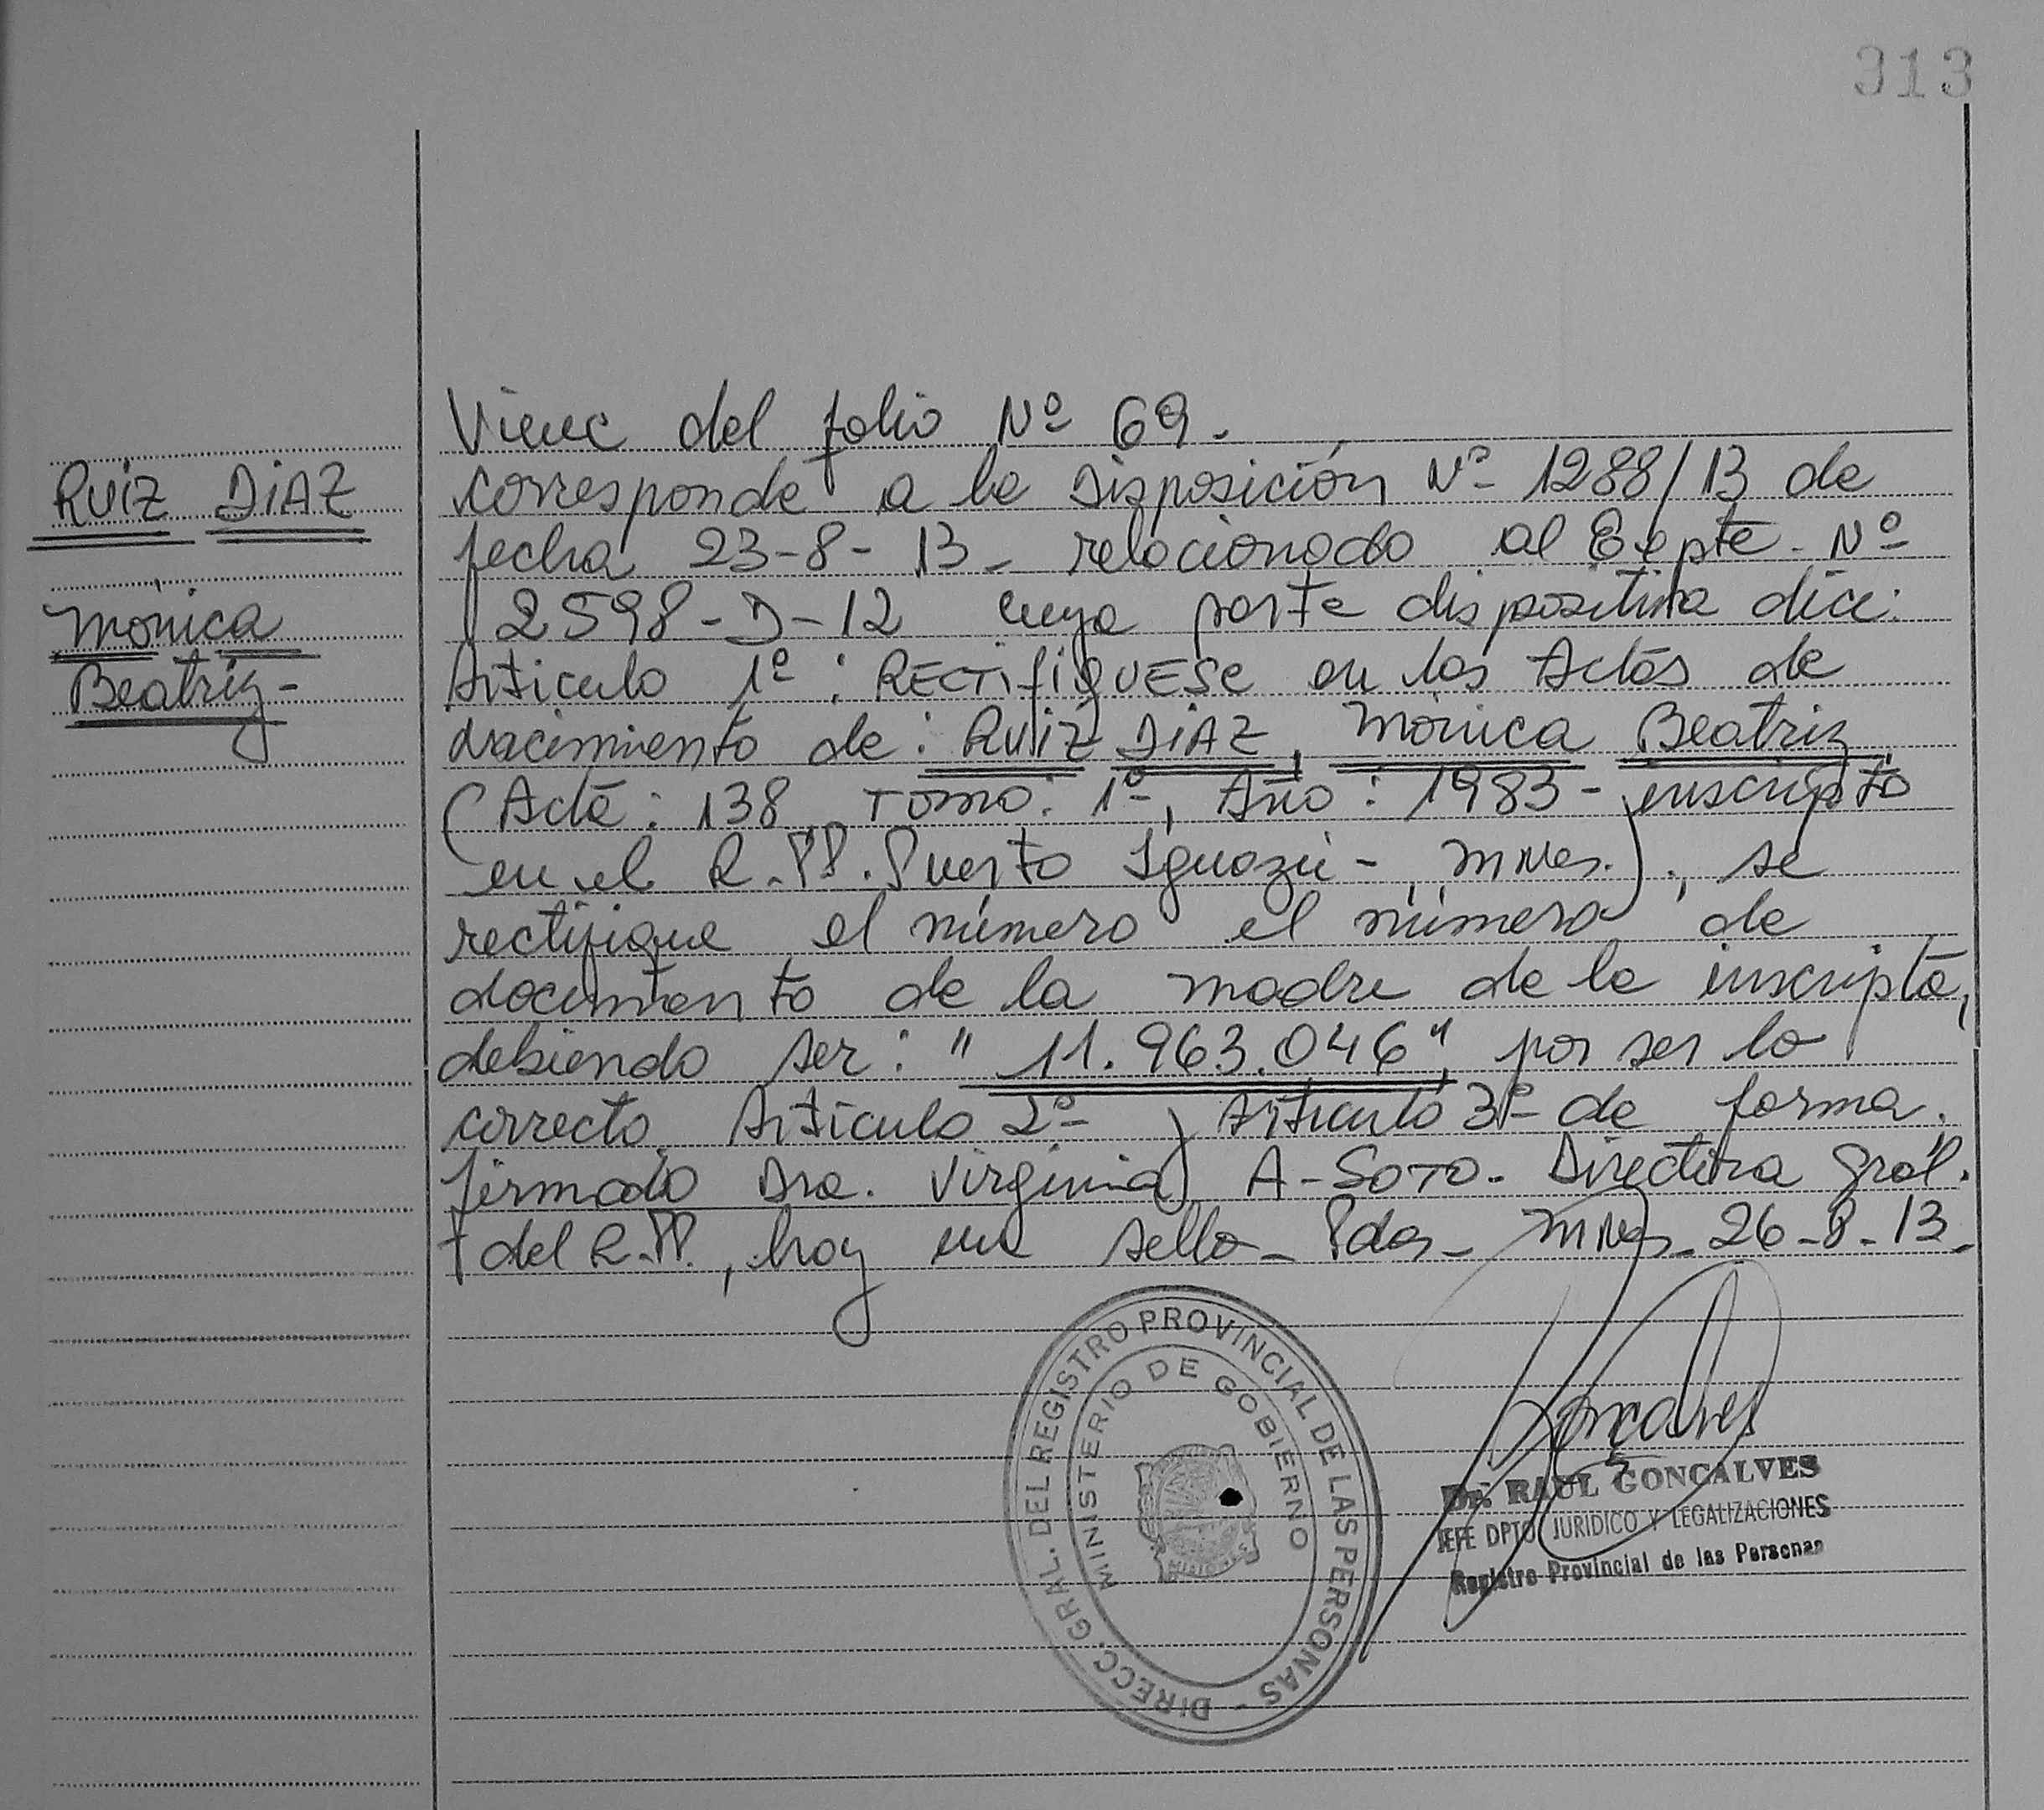 313
RUIZ DIAZ
Mónica
Beatriz-
Viene del folio Nº 69.
corresponde a la Disposición Nº 1288/13 de
fecha 23-8-13- relacionado al Expte. Nº
2598-D-12 cuya parte dispositiva dice:
Articulo 1º: RECTIFIQUESE en las Actas de
nacimiento de: RUIZ DIAZ, Mónica Beatriz
(Acta: 138 Tomo: 1º, Año: 1983- inscripto
en el R.PP. Puerto Iguazú-, Mnes.)., se
rectifique el número el número de
documento de la madre de la inscripta,
debiendo ser: "11.963.046", por ser lo
correcto Artículo 2º y Artículo 3º de forma.
firmado Dra. Virginia A-SOTO- Directora Gral.
del R.PP., hay un sello- Pdas- Mnes- 26-8-13-
DIRECC. GRAL. DEL REGISTRO PROVINCIAL DE LAS PERSONAS -
MINISTERIO DE GOBIERNO
Goncalves
Dr. RAUL GONCALVES
JEFE DPTO JURIDICO Y LEGALIZACIONES
Registro Provincial de las Personas